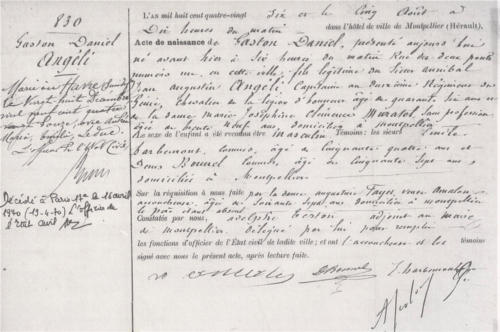 830
Gaston Daniel
Angéli
Marié au Havre
le vingt huit
mil neuf cent quatre
Marie, Emilie, Leduc.
L'officier de l'Etat Civil
Décédé à Paris 17e le 16 avril
1970 (19-4-70) L'officier de
l'état civil
L'AN mil huit cent quatre-vingt six et le cinq Août à
Dix heures du matin dans l'hôtel de ville de Montpellier (Hérault).
Acte de naissance de Gaston Daniel, présenté aujourd'hui
né avant hier à six heures du matin Rue des deux ponts
numéro un, en cette ville, fils légitime du sieur Annibal
Jean Augustin Angéli, Capitaine au deuxième Régiment du
Génie, Chevalier de la légion d'honneur âgé de quarante six ans et
de la dame Marie Joséphine Clémence Muratol sans profession
âgée de trente huit ans, domiciliés à Montpellier
Le sexe de l'enfant a été reconnu être Masculin Témoins: les sieurs Emile
Barbemont, commis, âgé de cinquante quatre ans et
Denis Bonnel commis, âgé de cinquante sept ans
domiciliés à Montpellier
Sur la réquisition à nous faite par la dame Augustine Fages, veuve
accoucheuse, âgée de soixante sept ans domiciliée à Montpellier
le père étant absent
Constatée par nous, Adolphe Tersou adjoint au maire
de Montpellier délégué par lui pour remplir
les fonctions d'officier de l'État civil de ladite ville; et ont l'accoucheuse et les témoins
signé avec nous le présent acte, après lecture faite.
DBonnel
E. Barbemont